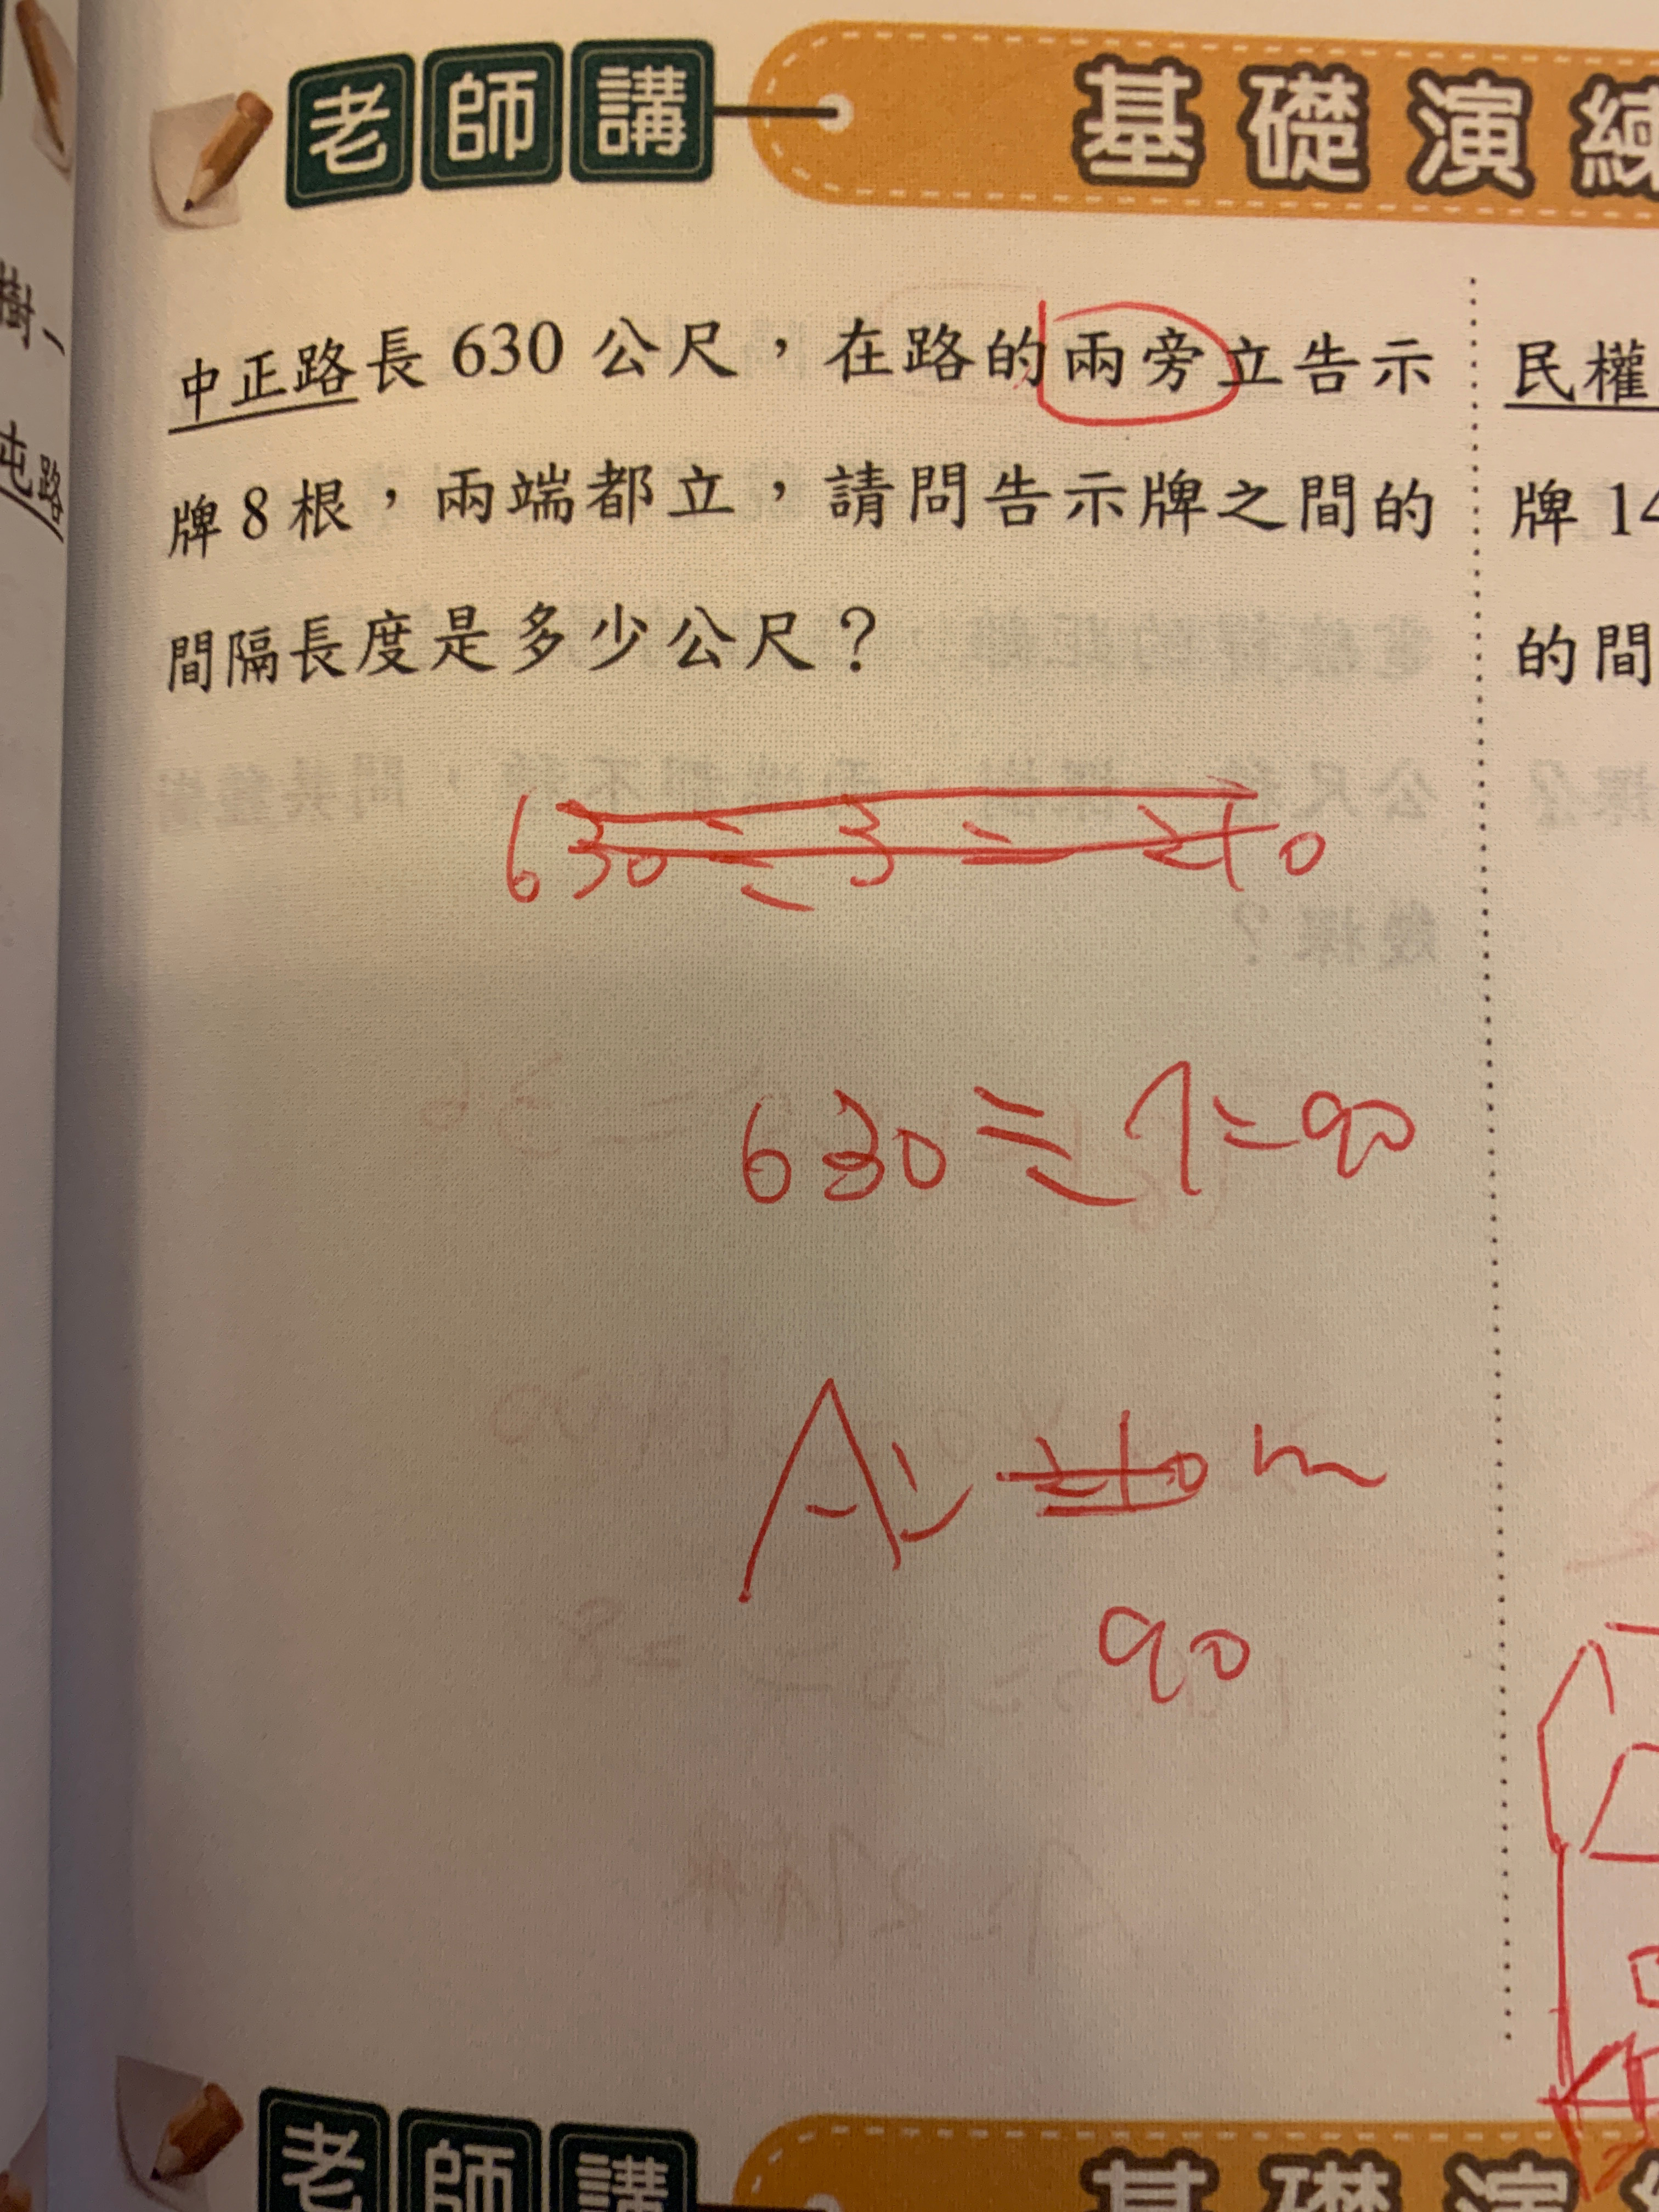 樹、
屯路
老師講 基礎演練
中正路長 630 公尺,在路的兩旁立告示
牌 8 根,兩端都立,請問告示牌之間的
間隔長度是多少公尺?
民權
牌 14
的間
630÷3=210
630÷7=90
A: 210 m
90
老師講 基礎演